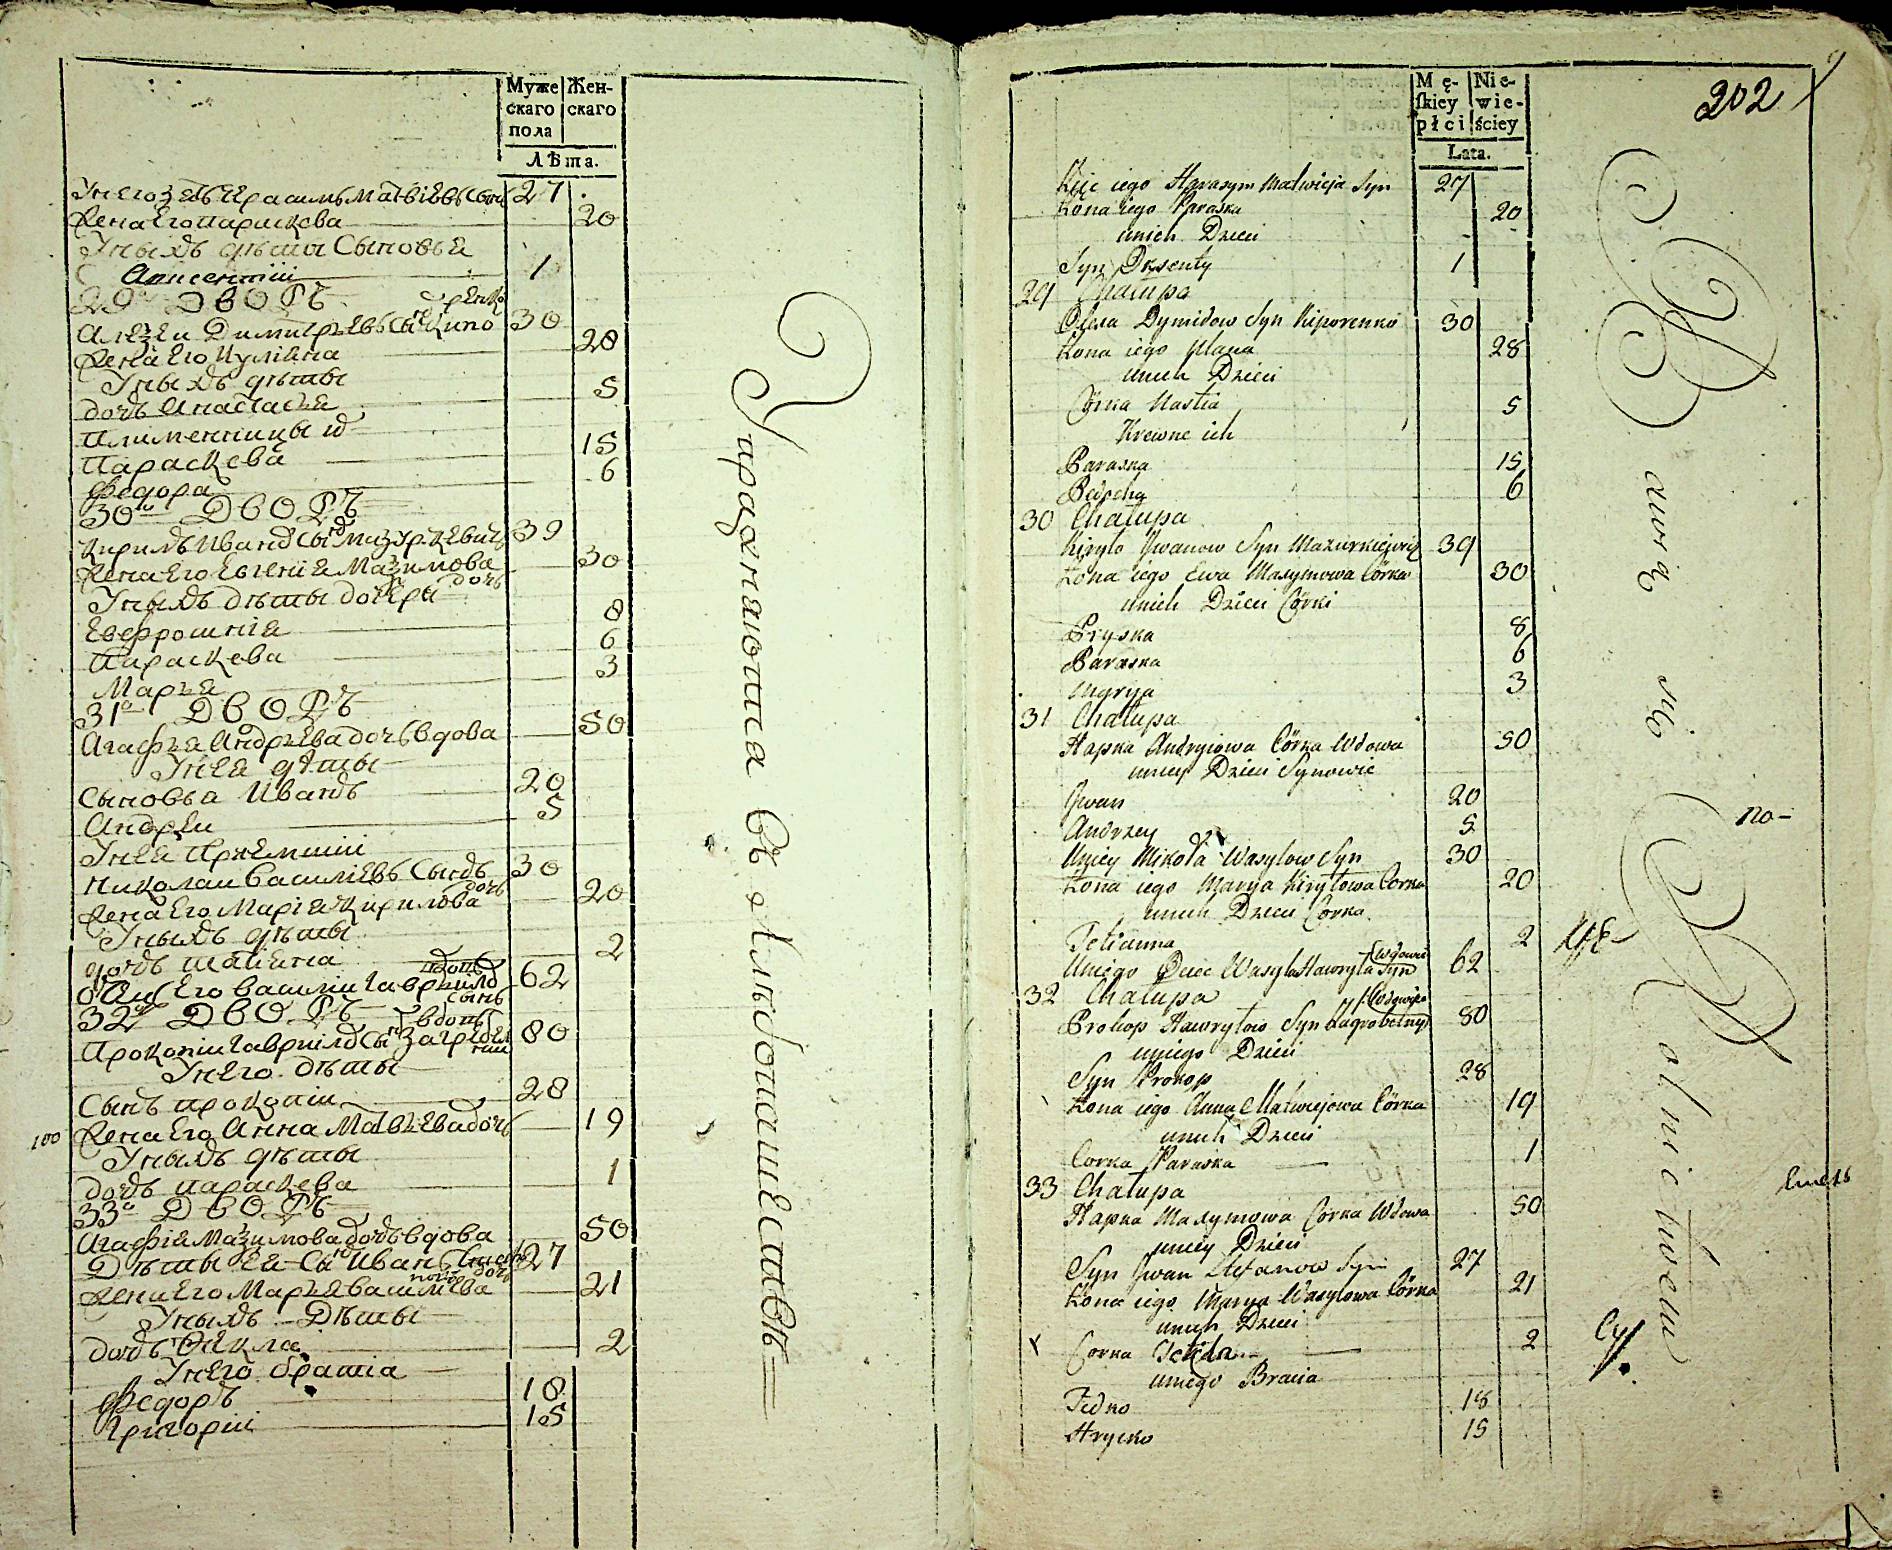 Муже
скаго
пола
Жен-
скаго
Лѣта.
У него зять Герасимъ Матвіевъ сынъ 27
Жена его Параскева 20
У ныхъ дѣти сыновья
Авксентий 1
29 ДВОРЪ
Алекѣи Димитріевъ сынъ Кипоренко 30
Жена его Улиана 28
У ныхъ дѣты
дочь Анастасия 5
Племенницы их
Параскева 15
Федора 6
30й ДВОРЪ
Кирилъ Иванов сынъ Мазуркевичъ 39
Жена его Евгения Маѯимова дочь 30
У ныхъ дѣты дочери
Евфросиния 8
Параскева 6
Марья 3
31й ДВОРЪ
Агафья Андрѣева дочь вдова 50
У нея дѣты
Сыновья Иванъ 20
Андрѣи 5
У нея приемший
Николаи Василиевъ сынъ 30
Жена его Мария Кирилова дочь 20
У ныхъ дѣты
дочь Татияна 2
Отец его Василии Гаврилов сынъ вдовъ 62
32й ДВОРЪ
Прокопии Гаврилов сынъ Загребелний вдовъ 80
У него дѣты
Сынъ Прокопии 28
100
Жена его Анна Матвѣева дочь 19
У ныхъ дѣты
дочь Параскева 1
33й ДВОРЪ
Агафия Маѯимова дочь вдова 50
Дѣты ея сынъ Иванъ 27
Жена его Марья Василиева дочь 21
У ныхъ Дѣты
дочь Ѳекла 2
У него братия
Федоръ 18
Григории 15
202
Mę-
skiey
płci
Nie-
wie-
ściey
Lata.
Zięć iego Harasym Matwieja Syn 27
Żona iego Paraska 20
unich Dzieci
Syn Oksenty 1
29 Chałupa
Olexa Dymidow Syn Kiporenko 30
Żona iego Ulana 28
unich Dzieci
Córka Nastia 5
Krewne ich
Paraska 15
Fedocha 6
30 Chałupa
Kiryło Jwanow Syn Mazurkiewicz 39
Żona iego Ewa Maxymowa Córka 30
unich Dzieci Córki
Pryska 8
Paraska 6
Marya 3
31 Chałupa
Hapka Andryiowa Córka Wdowa 50
uniey Dzieci Synowie
Jwan 20
Andrzey 5
Uniey Mikoła Wasylow Syn 30
Żona iego Marya Kiryłowa Corka 20
unich Dzieci Corka
Tetianna 2
Uniego Ociec Wasyl Hawryła Syn Wdowiec 62
32 Chałupa
Prokop Hawryłow Syn Zagrobelny Wdowiec 80
uniego Dzieci
Syn Prokop 28
Żona iego Anna Matwiejowa Córka 19
unich Dzieci
Corka Paraska 1
33 Chałupa
Hapka Maxymowa Córka Wdowa 50
uniey Dzieci
Syn Jwan Stefanow Syn 27
Żona iego Marya Wasylowa Córka 21
unich Dzieci
Corka Tekla 2
uniego Bracia
Fedko 18
Hrycko 15
по-